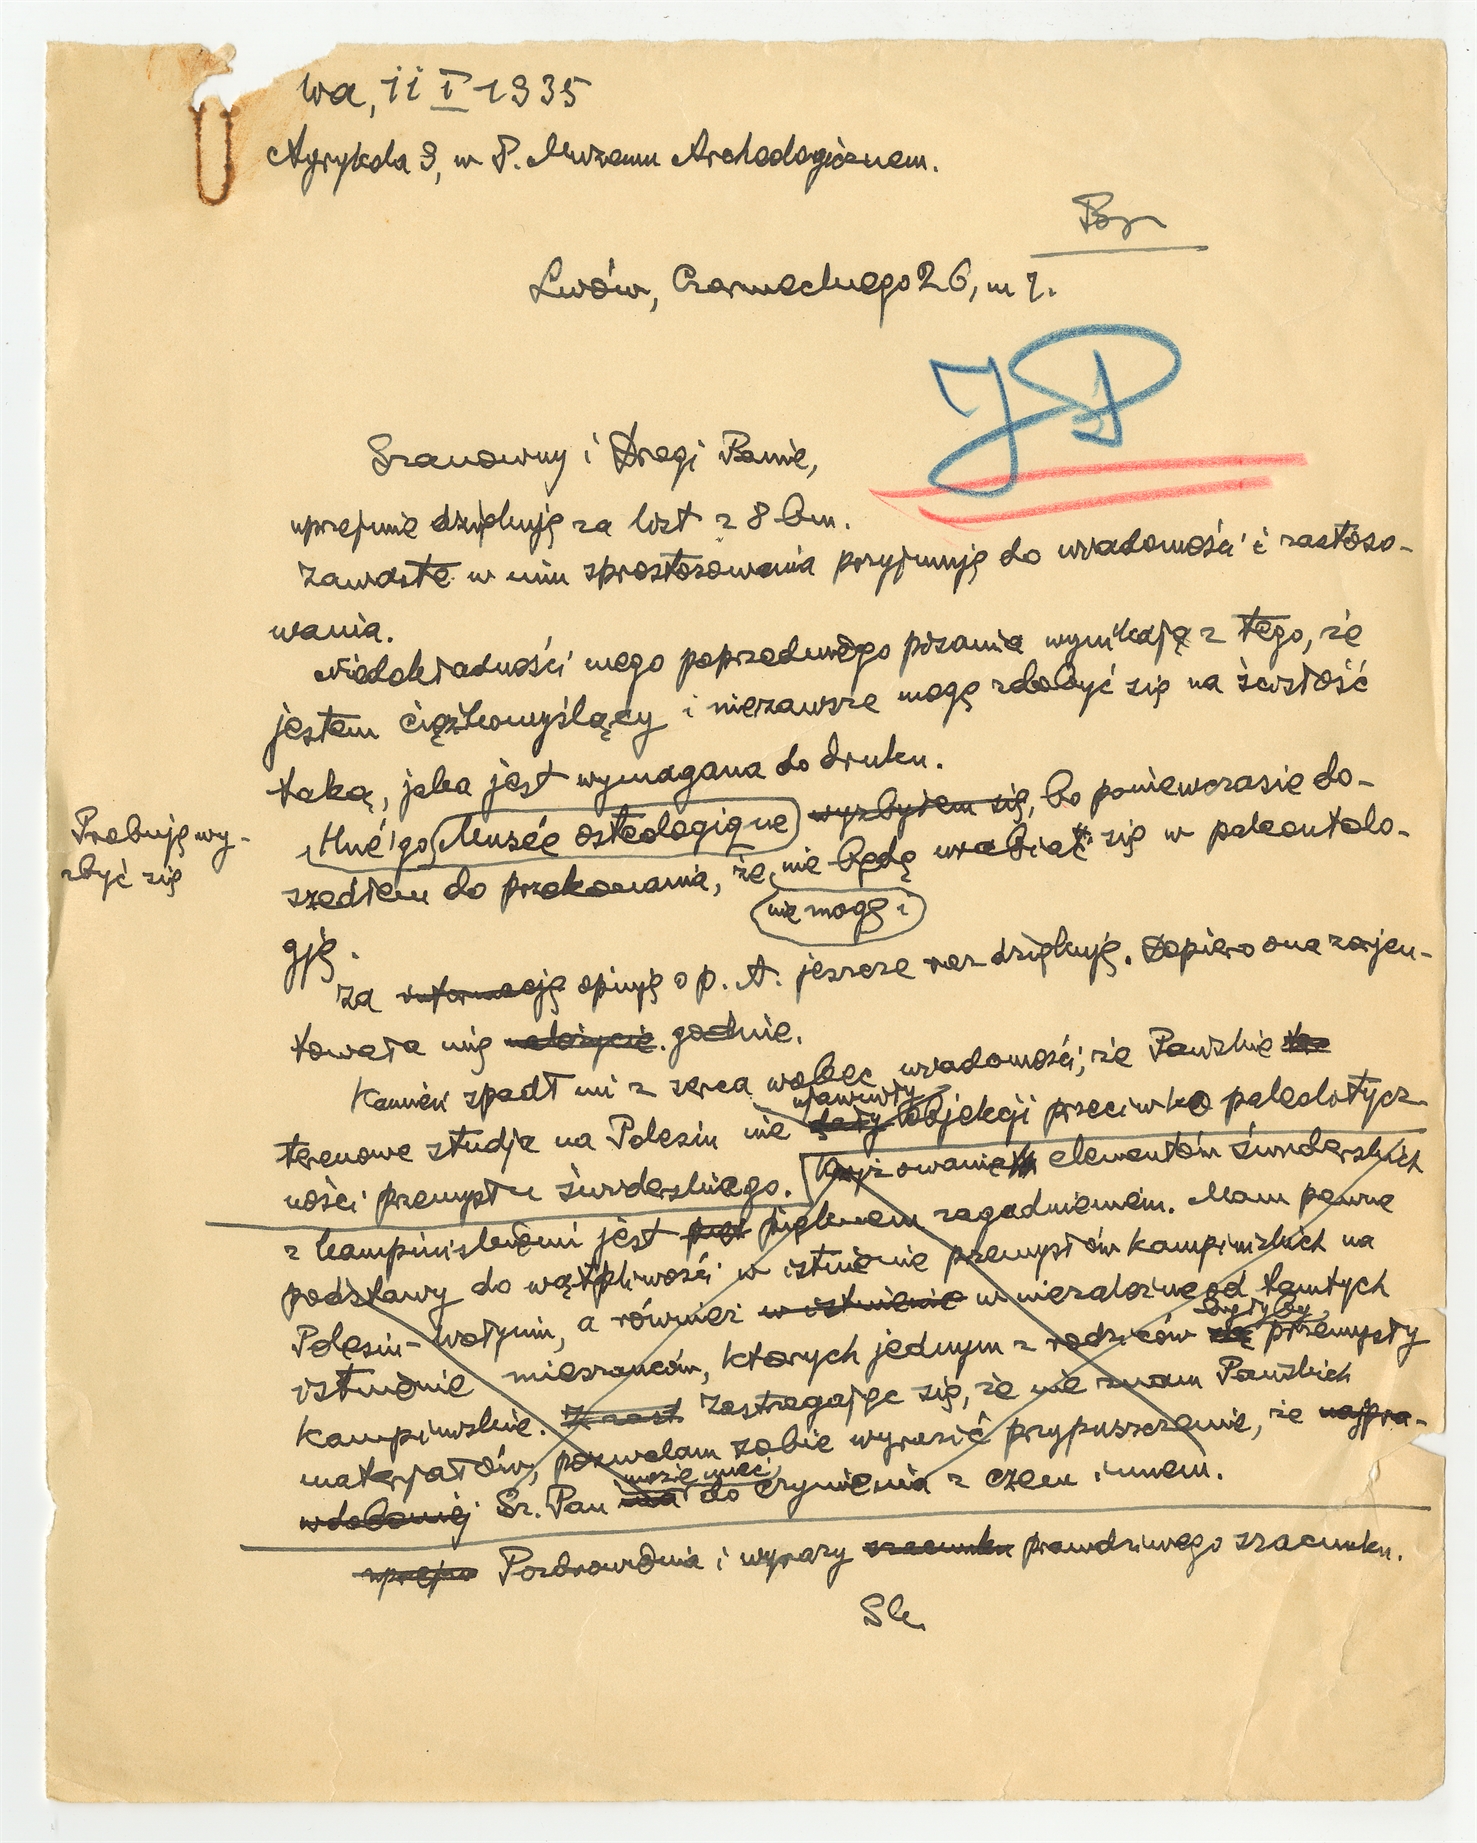 Wa, 11 I 1935
Agrykola 9, w P. Muzeum Archeologicznem.
Lwów, Czarneckiego 26, m 7.
JP
Szanowny i Drogi Panie,
uprzejmie dziękuję za list z 8 bm.
Zawarte w nim sprostowania przyjmuję do wiadomości i zastoso-
wania.
Niedokładności mego poprzedniego pisania wynikają z tego, że
jestem ciężkomyślący i niezawsze mogę zdobyć się na ścisłość
taką, jaka jest wymagana do druku.
Probuję wy-
zbyć się
Hué'go Musée ostéologique wyzbyłem się, bo poniewczasie do-
szedłem do przekonania, że nie będę wrabiał się w paleontolo-
nie mogę i
gję.
Za informację opinję o p. A. jeszcze raz dziękuję. Dopiero ona zorjen-
towała mię należycie. godnie.
Kamień spadł mi z serca wobec wiadomości, że Pańskie
ujawniły
terenowe studja na Polesiu nie dały objekcji przeciwko paleolitycz-
ności przemysłu świderskiego. Krzyżowanie elementów świderskich
z kampiniskiemi jest pięknem zagadnieniem. Mam pewne
podstawy do wątpliwości w istnienie przemysłów kampiniskich na
Polesiu-Wołyniu, a również w istnienie w niezależne od tamtych
byłyby
istnienie mieszańców, których jednym z rodziców są przemysły
kampiniskie. Zastrzegając się, że nie znam Pańskich
materjałów, pozwalam sobie wyrazić przypuszczenie, że najpra-
może mieć
wdobniej Sz. Pan ma do czynienia z czem innem.
Pozdrowienia i wyrazy szacunku prawdziwego szacunku.